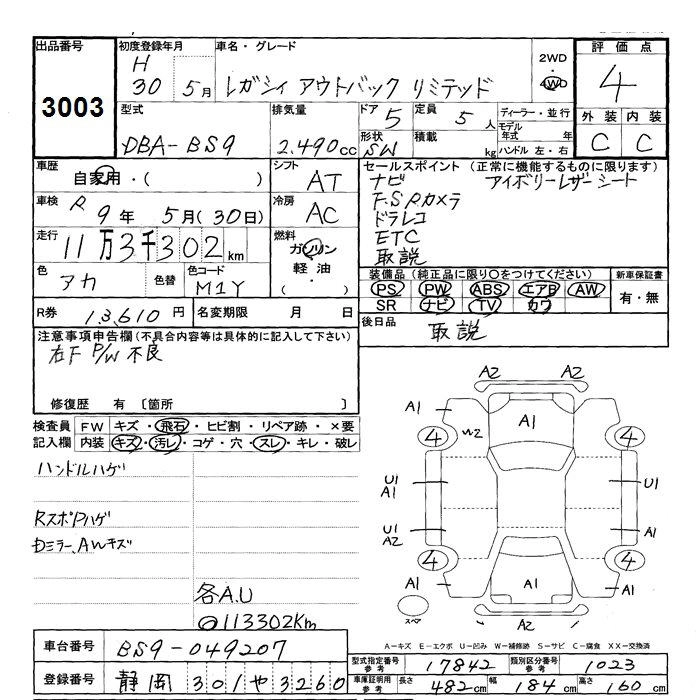 出品番号
3003
初度登録年月
H
30 5月
車名・グレード
レガシィ アウトバック リミテッド
2WD
4WD
評価点
4
外装 内装
C C
型式
DBA-BS9
排気量
2.490cc
ドア 5
定員 5人
ディーラー・並行
形状 SW
積載 kg
モデル年式 年
ハンドル 左・右
車歴
自家用・( )
シフト
AT
車検
R 9年 5月(30日)
冷房
AC
走行
11万3千302km
燃料
ガソリン
軽油
・
( )
色
アカ
色替
色コード
M1Y
セールスポイント (正常に機能するものに限ります)
ナビ アイボリーレザーシート
F.S.Rカメラ
ドラレコ
ETC
取説
装備品 (純正品に限り〇をつけてください)
PS PW ABS エアB AW
SR ナビ TV カワ
新車保証書
有・無
R券 13,610円
名変期限 月 日
後日品
取説
注意事項申告欄(不具合内容等は具体的に記入して下さい)
右F P/W 不良
修復歴 有 〔箇所 〕
検査員 FW キズ・飛石・ヒビ割・リペア跡・×要
記入欄 内装 キズ・汚レ・コゲ・穴・スレ・キレ・破レ
ハンドルハゲ
RスポPハゲ
Dミラー、AWキズ
各A.U
113302Km
A2 A2
A1 A1 A1
4 W2 4
U1
A1
U1
U1
A2
A1
4 4
A1 A1 A1
スペア
A2 A2
A-キズ E-エクボ U-凹み W-補修跡 S-サビ C-腐食 XX-交換済
車台番号 BS9-049207
登録番号 静岡 301 や 3260
型式指定番号 参考 17842
類別区分番号 参考 1023
車庫証明用 参考 長さ 482cm 幅 184cm 高さ 160cm